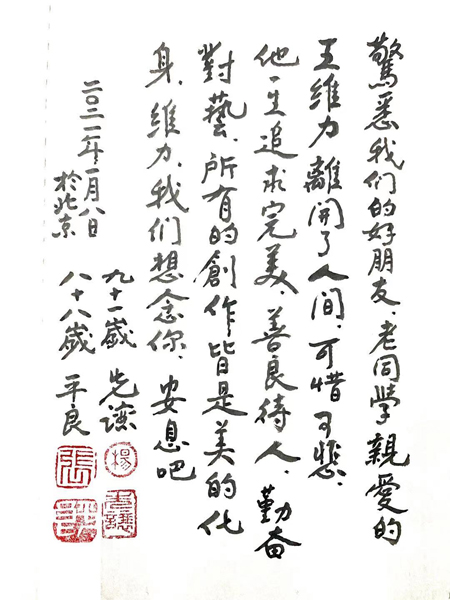 驚悉我们的好朋友、老同學親愛的
王維力離開了人间、可惜可悲、
他一生追求完美、善良待人、勤奋
對藝、所有的創作皆是美的化
身、維力、我们想念你、安息吧
九十一歲 先讓
楊
於北京
八十八歲 平良
張
二〇二一年一月八日